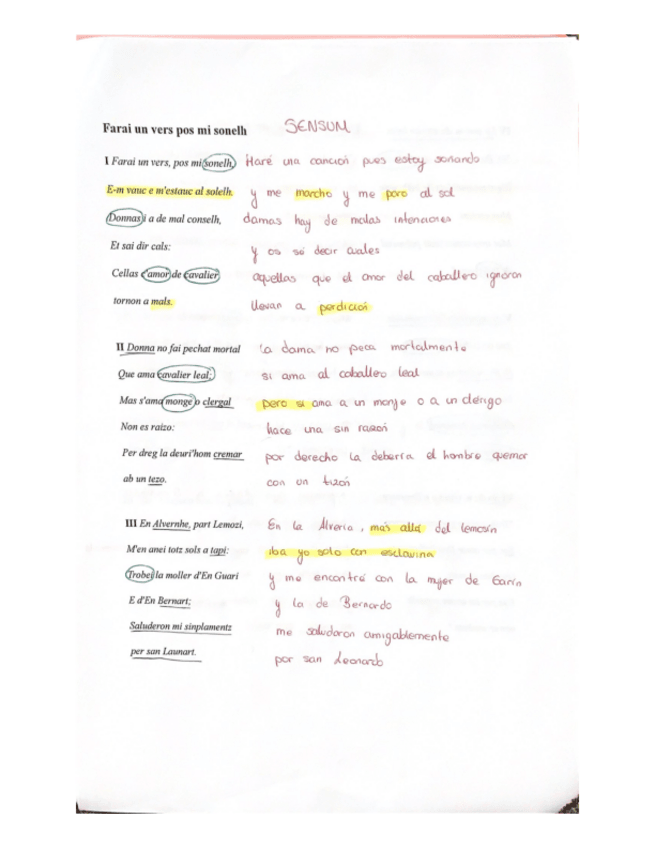 Farai un vers pos mi sonelh SENSUM
I Farai un vers, pos mi sonelh, Haré una canción pues estoy soñando
E-m vauc e m'estauc al solelh. y me marcho y me paro al sol
Donnas i a de mal conselh, damas hay de malas intenciones
Et sai dir cals: y os sé decir cuales
Cellas c'amor de cavalier aquellas que el amor del caballero ignoran
tornon a mals. llevan a perdición
II Donna no fai pechat mortal la dama no peca mortalmente
Que ama cavalier leal; si ama al caballero leal
Mas s'ama monge o clergal pero si ama a un monje o a un clérigo
Non es raizo: hace una sin razón
Per dreg la deuri'hom cremar por derecho la debería el hombre quemar
ab un tezo. con un tizón
III En Alvernhe, part Lemozi, En la Alvernia, más allá del lemosín
M'en anei totz sols a tapi: iba yo solo con esclavina
Trobei la moller d'En Guari y me encontré con la mujer de Garín
E d'En Bernart; y la de Bernardo
Saluderon mi sinplamentz me saludaron amigablemente
per san Launart. por san Leonardo